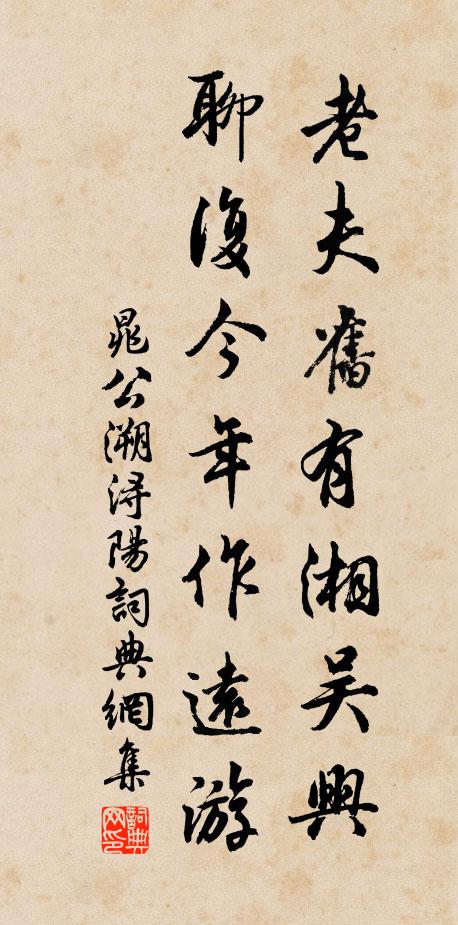 老夫舊有湘吴興
聊復今年作遠游
晁公溯潯陽詞典網集
詞典網印